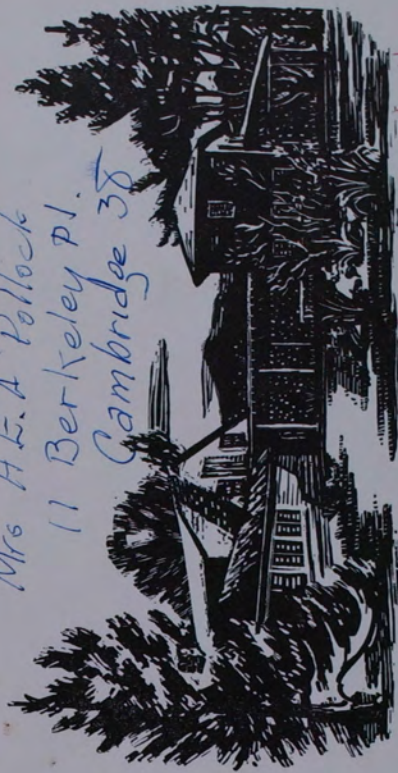 Mrs A.E.A Pollock
11 Berkeley Pl.
Cambridge 38